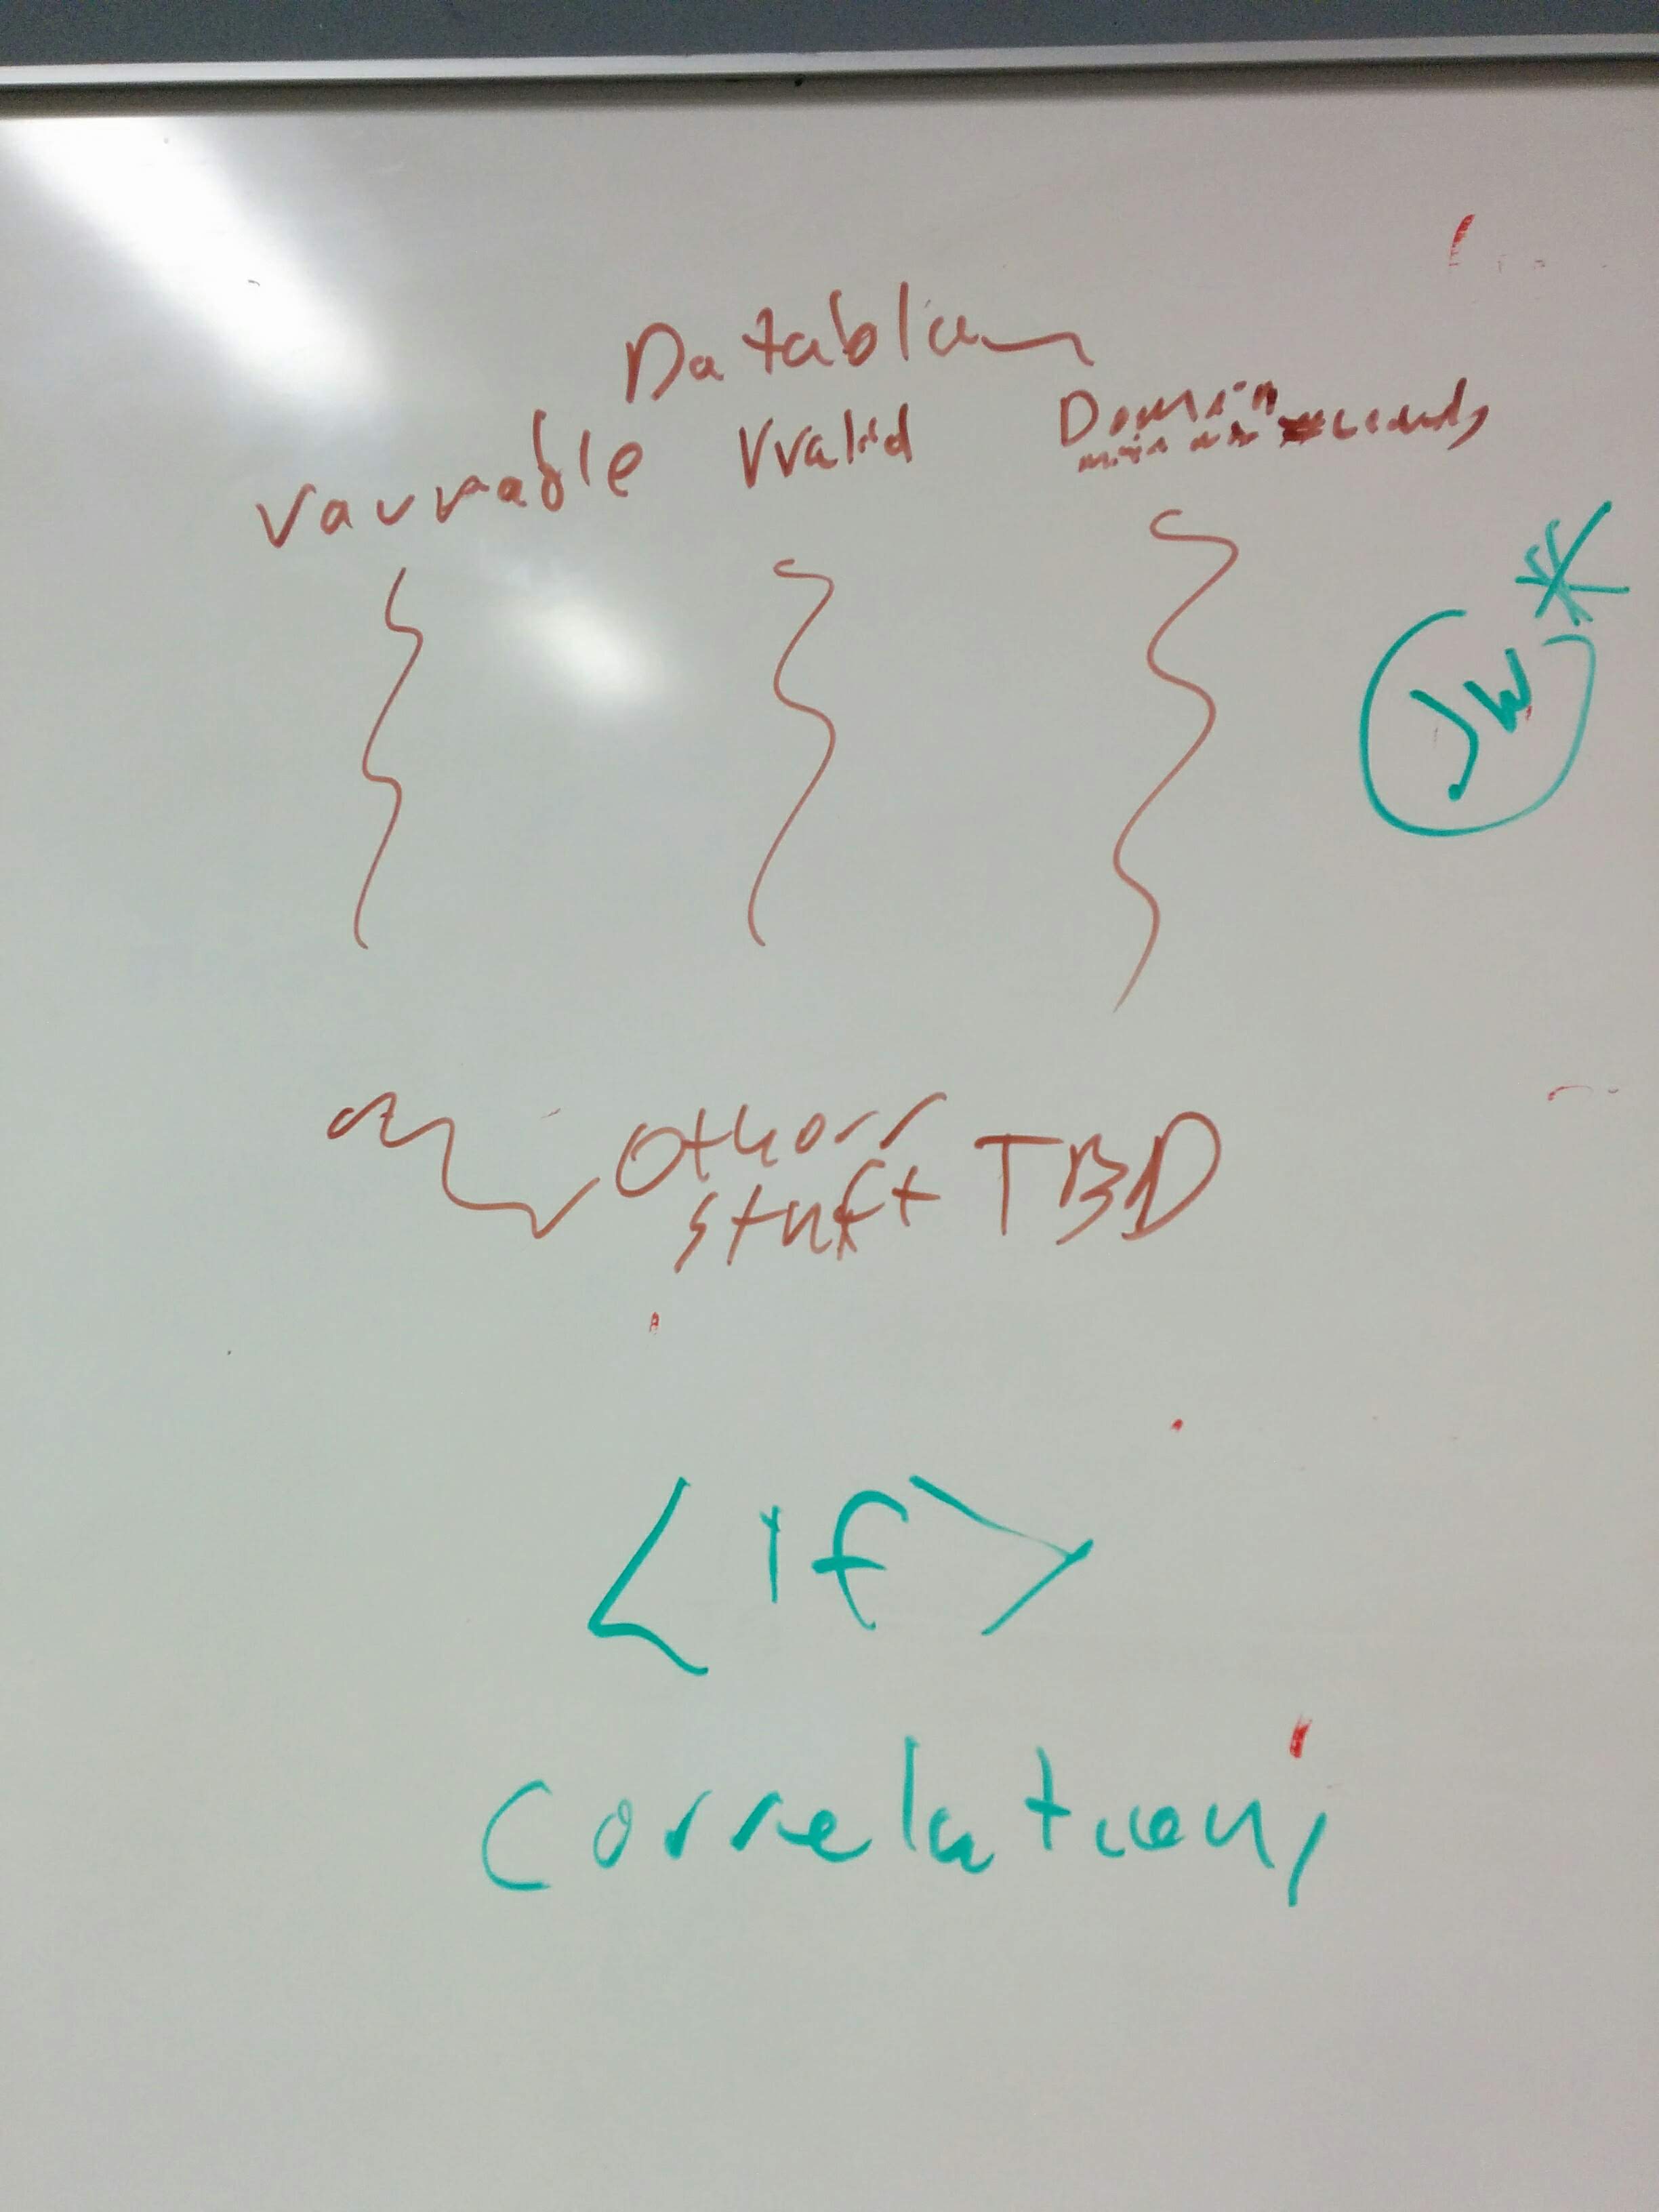 Datablan
Vauvrable Vvalid Domain
min max
JW
Other
stuff TBD
<if>
Correlations